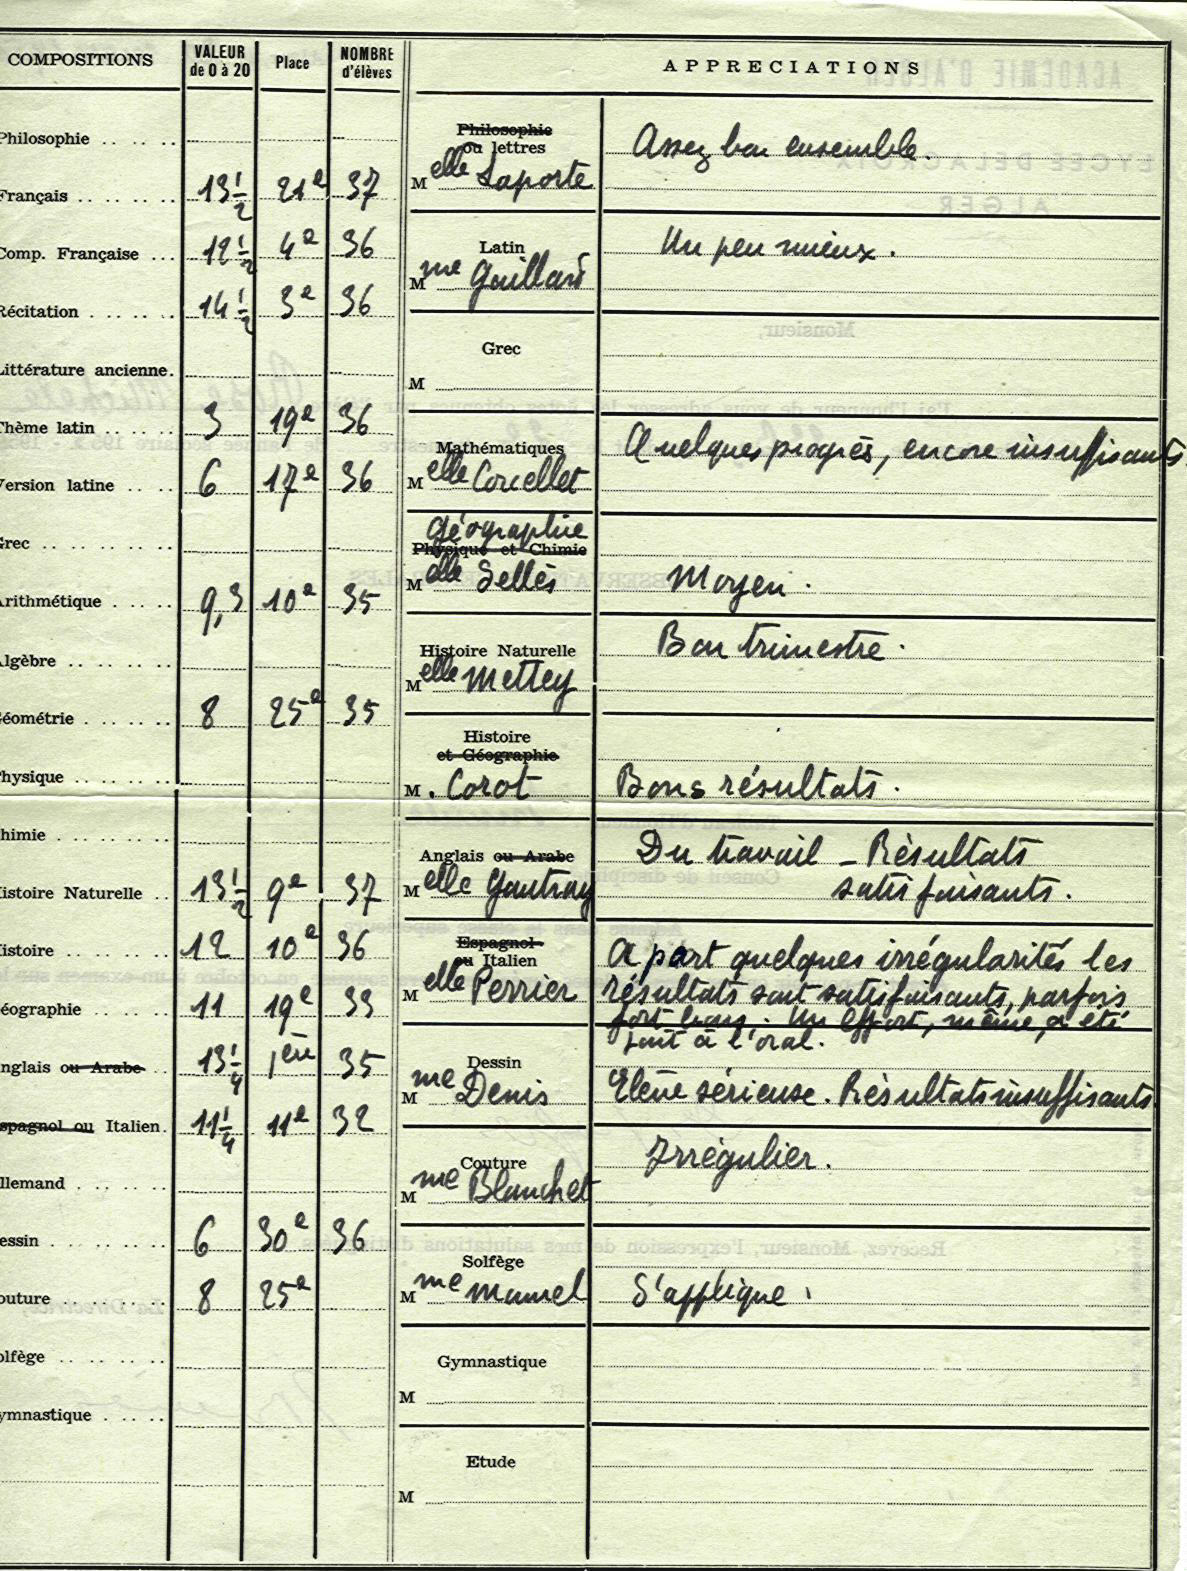 COMPOSITIONS VALEUR de 0 à 20 Place NOMBRE d'élèves
Philosophie
Français 13 1/2 21e 37
Comp. Française 12 1/2 4e 36
Récitation 14 1/2 3e 36
Littérature ancienne.
Thème latin 3 19e 36
Version latine 6 17e 36
Grec
Arithmétique 9,3 10e 35
Algèbre
Géométrie 8 25e 35
Physique
himie
istoire Naturelle 13 1/2 9e 37
istoire 12 10e 36
éographie 11 19e 33
nglais ou Arabe 13 1/4 1ère 35
spagnol ou Italien. 11 1/4 11e 32
llemand
essin 6 30e 36
outure 8 25e
olfège
ymnastique
APPRECIATIONS
Philosophie
ou lettres
Melle Laporte
Assez bon ensemble.
Latin
Mme Gaillard
Un peu mieux.
Grec
M
Mathématiques
Melle Corcellet
Quelques progrès, encore insuffisants.
Géographie
Physique et Chimie
Melle Sellès
Moyen.
Histoire Naturelle
Melle Mettey
Bon trimestre.
Histoire
et Géographie
M. Corot
Bons résultats.
Anglais ou Arabe
Melle Gautray
Du travail - Résultats
satisfaisants.
Espagnol
ou Italien
Melle Perrier
A part quelques irrégularités les
résultats sont satisfaisants, parfois
fort bons. Un effort, même, a été
fait à l'oral.
Dessin
Mme Denis
Elève sérieuse. Résultats insuffisants.
Couture
Mme Blanchet
Irrégulier.
Solfège
Mme Mamel
S'applique.
Gymnastique
M
Etude
M